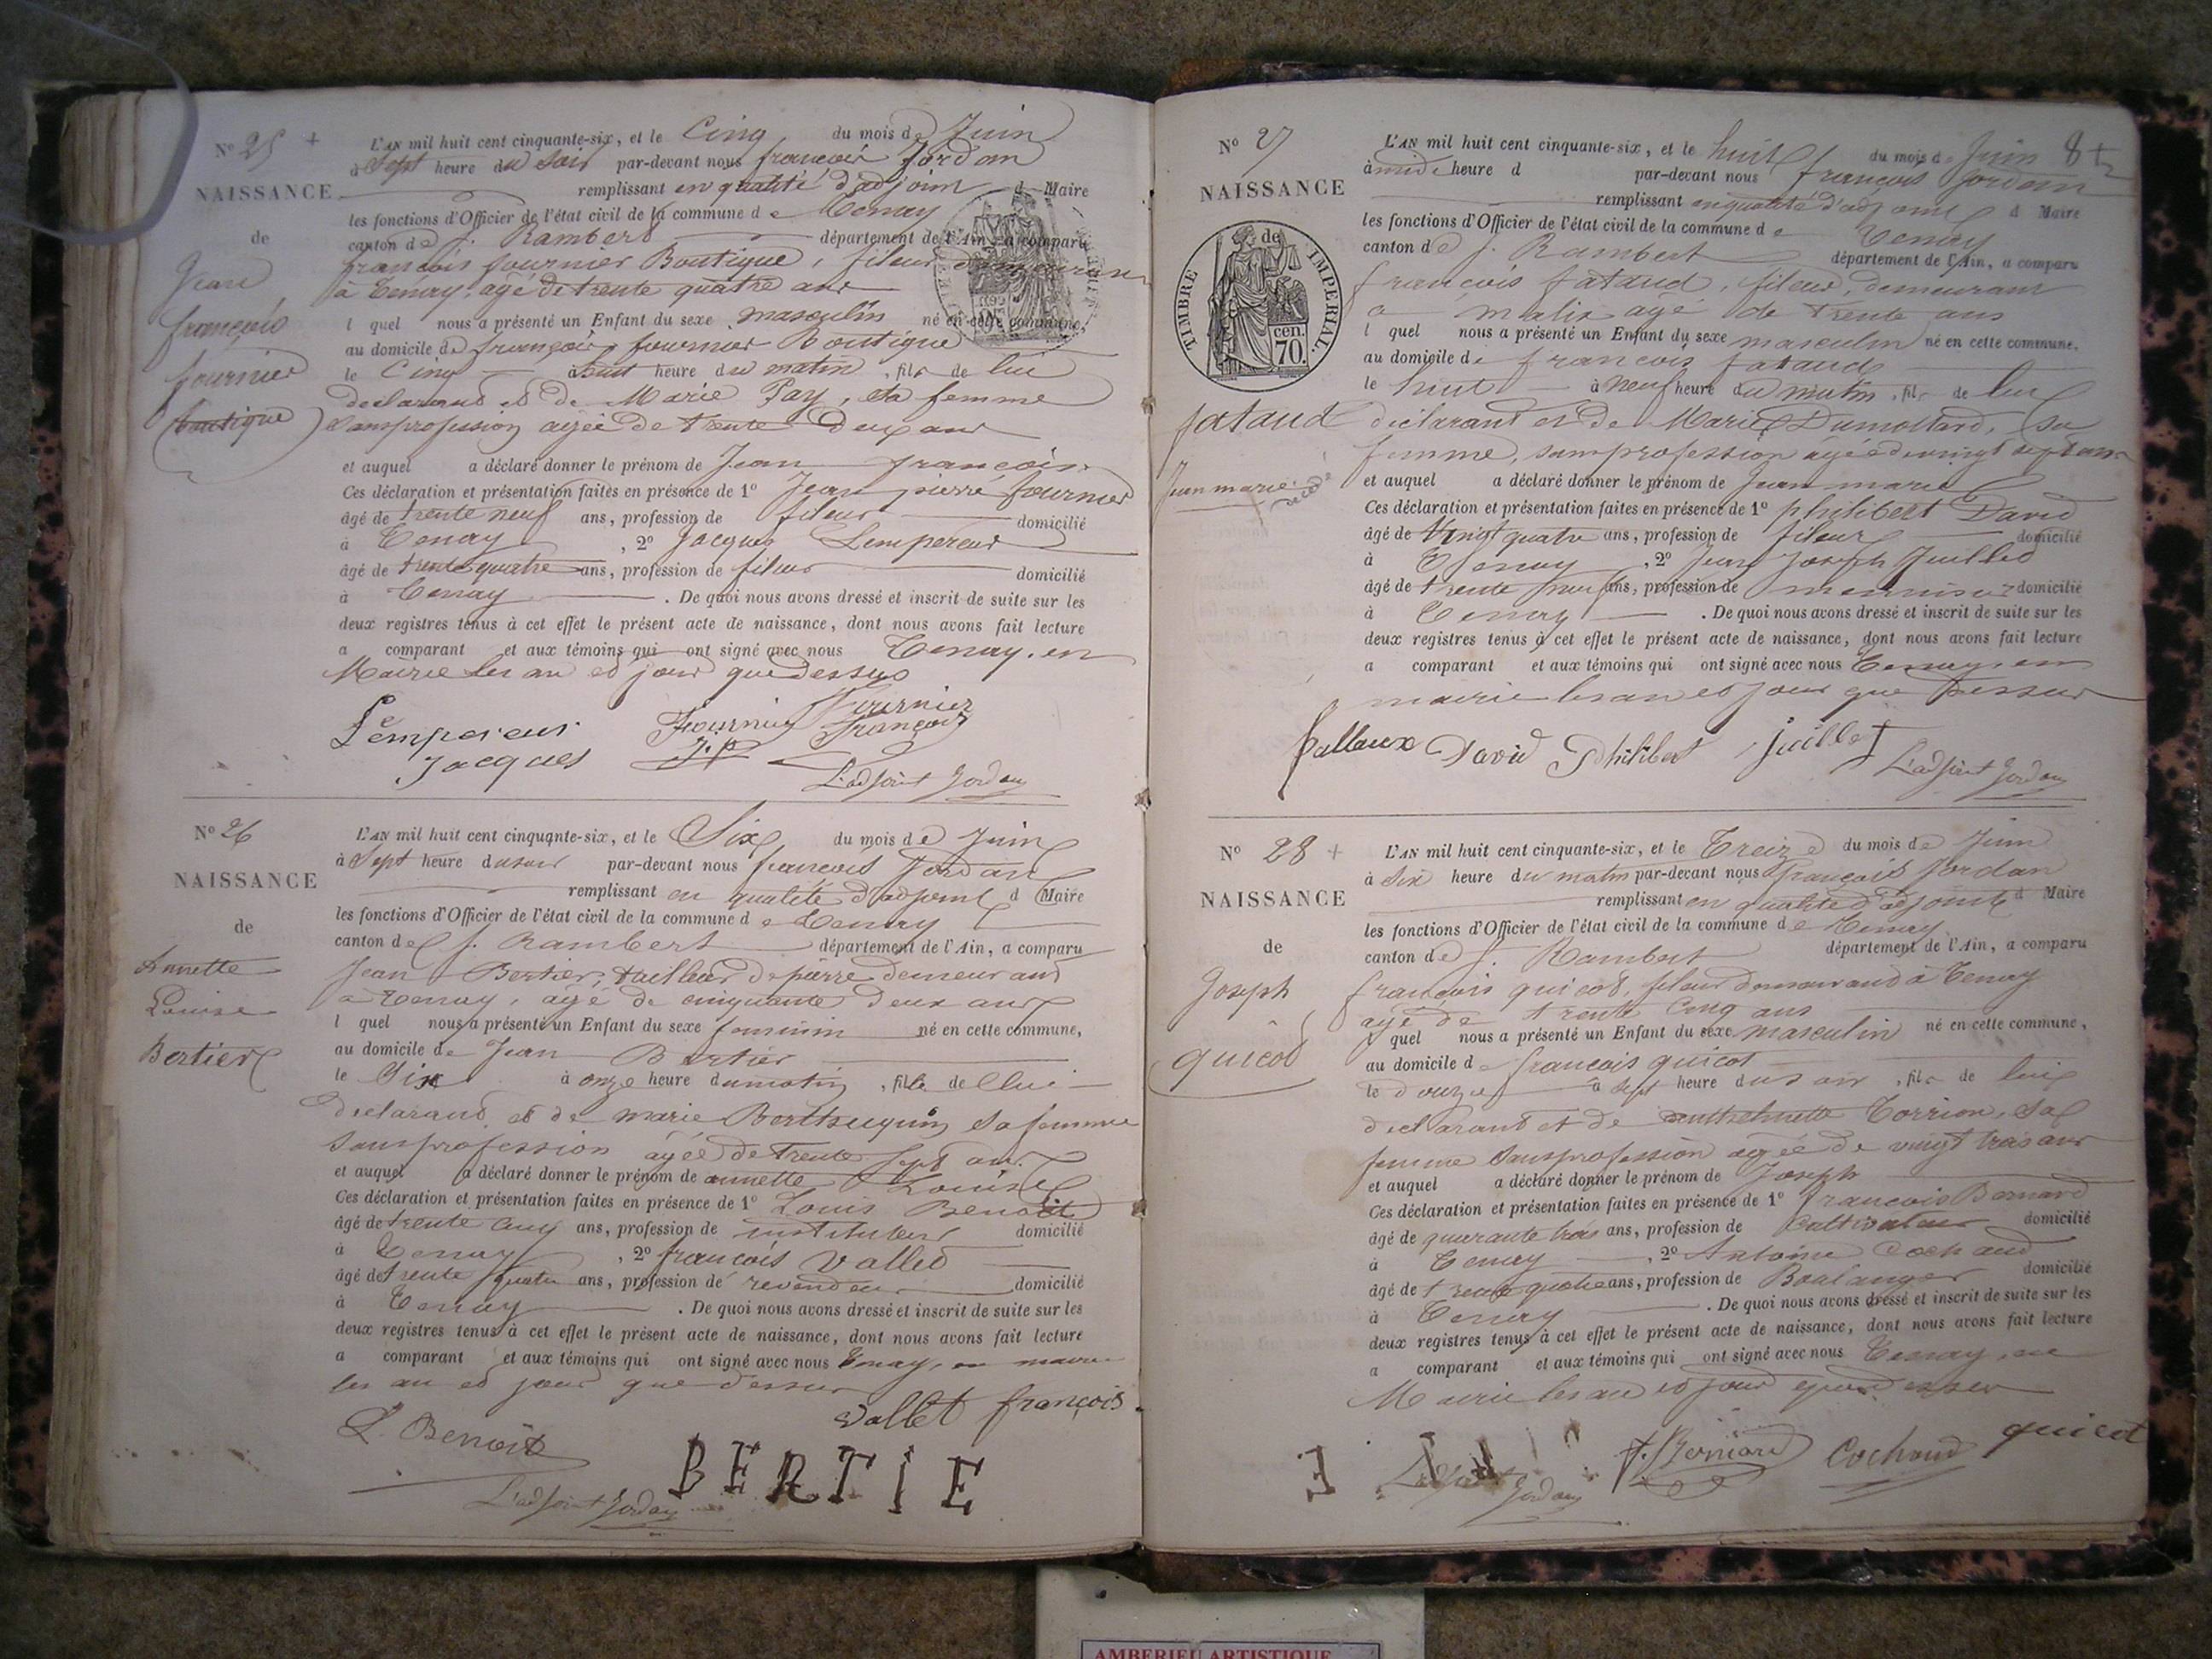 N° 25 +
NAISSANCE
de
Jean
françois
fournier
(boutique)
L'AN mil huit cent cinquante-six, et le Cinq du mois de Juin
à Sept heure du Soir par-devant nous françois Jordan
remplissant en qualité d'adjoint d Maire
les fonctions d'Officier de l'état civil de la commune de Tenay
canton de S. Rambert département de l'Ain, a comparu
francois fournier Boutique, fileur demeurant
à Tenay, agé de trente quatre ans
l quel nous a présenté un Enfant du sexe masculin né en cette commune,
au domicile de françois fournier Boutique
le Cinq à huit heure du matin, fils de lui
declarant et de Marie Pay, sa femme
sans profession agée de trente deux ans
et auquel a déclaré donner le prénom de Jean françois
Ces déclaration et présentation faites en présence de 1° Jean pierre fournier
âgé de trente neuf ans, profession de fileur domicilié
à Tenay, 2° Jacques Lempereur
âgé de trente quatre ans, profession de fileur domicilié
à Tenay. De quoi nous avons dressé et inscrit de suite sur les
deux registres tenus à cet effet le présent acte de naissance, dont nous avons fait lecture
a comparant et aux témoins qui ont signé avec nous Tenay, en
Mairie les an et jour que dessus
Lempereur Fournier Fournier
Jacques J.P François
L'adjoint Jordan
N° 26
NAISSANCE
de
Annette
Louise
Bertier
L'AN mil huit cent cinquante-six, et le Six du mois de Juin
à Sept heure du soir par-devant nous françois Jordan
remplissant en qualité d'adjoint d Maire
les fonctions d'Officier de l'état civil de la commune de Tenay
canton de S. Rambert département de l'Ain, a comparu
Jean Bertier, tailleur de pierre demeurant
a Tenay, agé de cinquante deux ans
l quel nous a présenté un Enfant du sexe feminin né en cette commune,
au domicile de Jean Bertier
le Six à onze heure du matin, fille de lui
declarant et de marie sa femme
sans profession agée de trente sept ans
et auquel a déclaré donner le prénom de annette Louise
Ces déclaration et présentation faites en présence de 1° Louis Benoit
âgé de trente cinq ans, profession de instituteur domicilié
à Tenay, 2° francois Vallet
âgé de trente quatre ans, profession de revendeur domicilié
à Tenay. De quoi nous avons dressé et inscrit de suite sur les
deux registres tenus à cet effet le présent acte de naissance, dont nous avons fait lecture
a comparant et aux témoins qui ont signé avec nous Tenay, en mairie
les an et jour que dessus
L. Benoit vallet françois
BERTIE
L'adjoint Jordan
N° 27
NAISSANCE
de
TIMBRE IMPERIAL.
cen.
70.
fataud
Jean marie
L'AN mil huit cent cinquante-six, et le huit du mois de Juin 8
à midi heure d par-devant nous françois Jordan
remplissant en qualité d'adjoint d Maire
les fonctions d'Officier de l'état civil de la commune de Tenay
canton de S. Rambert département de l'Ain, a comparu
francois fataud, fileur, demeurant
a malix agé de trente ans
l quel nous a présenté un Enfant du sexe masculin né en cette commune.
au domicile de francois fataud
le huit à neuf heure du matin, fils de lui
déclarant et de Marie Dumollard, sa
femme, sans profession agée de vingt sept ans
et auquel a déclaré donner le prénom de Jean marie
Ces déclaration et présentation faites en présence de 1° philibert David
âgé de Vingt quatre ans, profession de fileur domicilié
à Tenay, 2° Jean Joseph Juillet
âgé de trente neuf ans, profession de menuisier domicilié
à Tenay. De quoi nous avons dressé et inscrit de suite sur les
deux registres tenus à cet effet le présent acte de naissance, dont nous avons fait lecture
a comparant et aux témoins qui ont signé avec nous Tenay, en
mairie les an et jour que dessus
fallaux David Philibert juillet
L'adjoint Jordan
N° 28 +
NAISSANCE
de
Joseph
quicot
L'AN mil huit cent cinquante-six, et le Treize du mois de Juin
à Six heure du matin par-devant nous françois Jordan
remplissant en qualité d'adjoint d Maire
les fonctions d'Officier de l'état civil de la commune de Tenay
canton de S. Rambert département de l'Ain, a comparu
francois quicot, fileur demeurand à Tenay
agé de trente cinq ans
l quel nous a présenté un Enfant du sexe masculin né en cette commune,
au domicile de francois quicot
le douze à sept heure du soir, fils de lui
declarant et de Torrion, sa
femme sans profession agée de vingt trois ans
et auquel a déclaré donner le prénom de Joseph
Ces déclaration et présentation faites en présence de 1° francois Bernard
âgé de quarante trois ans, profession de Cultivateur domicilié
à Tenay, 2° Antoine Cochaud
âgé de trente quatre ans, profession de Boulanger domicilié
à Tenay. De quoi nous avons dressé et inscrit de suite sur les
deux registres tenus à cet effet le présent acte de naissance, dont nous avons fait lecture
a comparant et aux témoins qui ont signé avec nous Tenay, en
Mairie les an et jour que dessus
f. Bernard Cochaud quicot
L'adjoint Jordan
AMBERIEU ARTISTIQUE